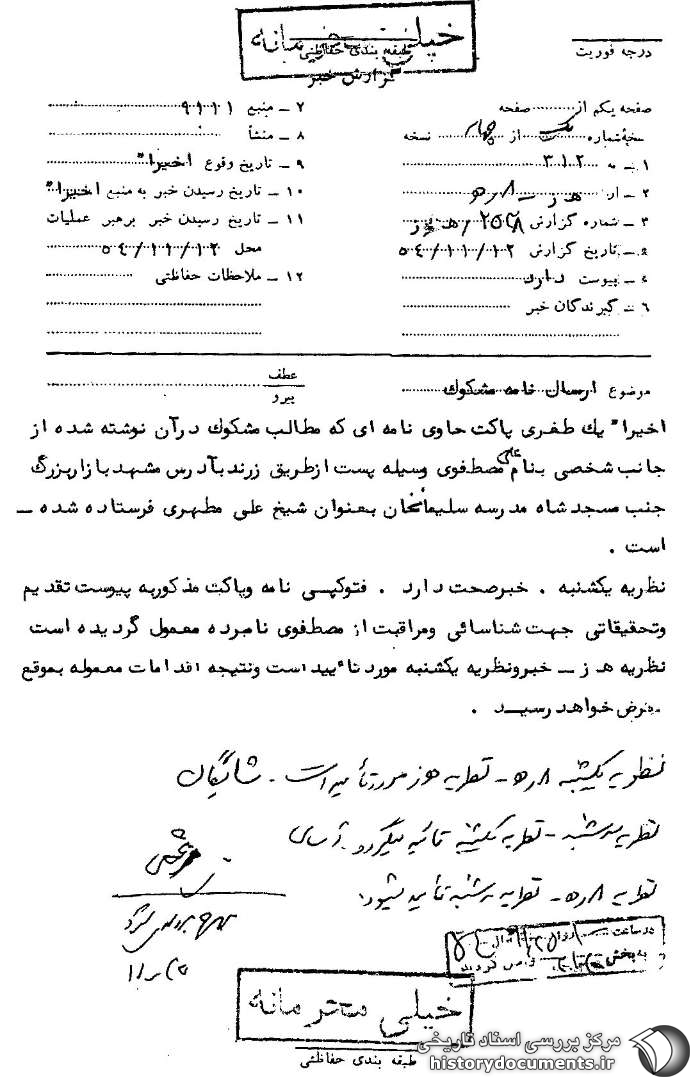 خیلی محرمانه
طبقه بندی حفاظتی
گزارش خبر
درجه فوریت
صفحه یکم از صفحه
نسخهٔ شماره یک از چهار نسخه
۱ ـ به ۳۱۲
۲ ـ از
۳ ـ شماره گزارش
٤ ـ تاریخ گزارش ٥٤/۱۱/۱۲
ء ـ پیوست دارد
٦ ـ گیرندگان خبر
۷ ـ منبع ۹۱۱۱
۸ ـ منشأ
۹ ـ تاریخ وقوع اخیراً
۱۰ ـ تاریخ رسیدن خبر به منبع اخیراً
۱۱ ـ تاریخ رسیدن خبر برهبر عملیات
محل ٥٤/۱۱/۱۲
۱۲ ـ ملاحظات حفاظتی
موضوع ارسال نامه مشکوک
عطف
پیرو
اخیراً یک طغری پاکت حاوی نامه ای که مطالب مشکوک درآن نوشته شده از
جانب شخصی بنام علی مصطفوی وسیله پست ازطریق زرند بآدرس مشهد بازاربزرگ
جنب مسجد شاه مدرسه سلیمانخان بعنوان شیخ علی مطهری فرستاده شده ـ
است .
نظریه یکشنبه . خبرصحت دارد . فتوکپی نامه وپاکت مذکوربه پیوست تقدیم
وتحقیقاتی جهت شناسائی ومراقبت از مصطفوی نامبرده معمول گردیده است
نظریه ه ز ـ خبرونظریه یکشنبه مورد تأیید است ونتیجه اقدامات معموله بموقع
بعرض خواهد رسید .
نظریه یکشنبه ۸ ره ـ نظریه ه ز مورد تأیید است ـ شایگان
نظریه سه شنبه ـ نظریه یکشنبه تائید میگردد .
نظریه ۸ ره ـ نظریه سه شنبه تأیید میشود .
در ساعت
به بخش ۳۱۲
خیلی محرمانه
طبقه بندی حفاظتی
مرکز بررسی اسناد تاریخی
historydocuments.ir